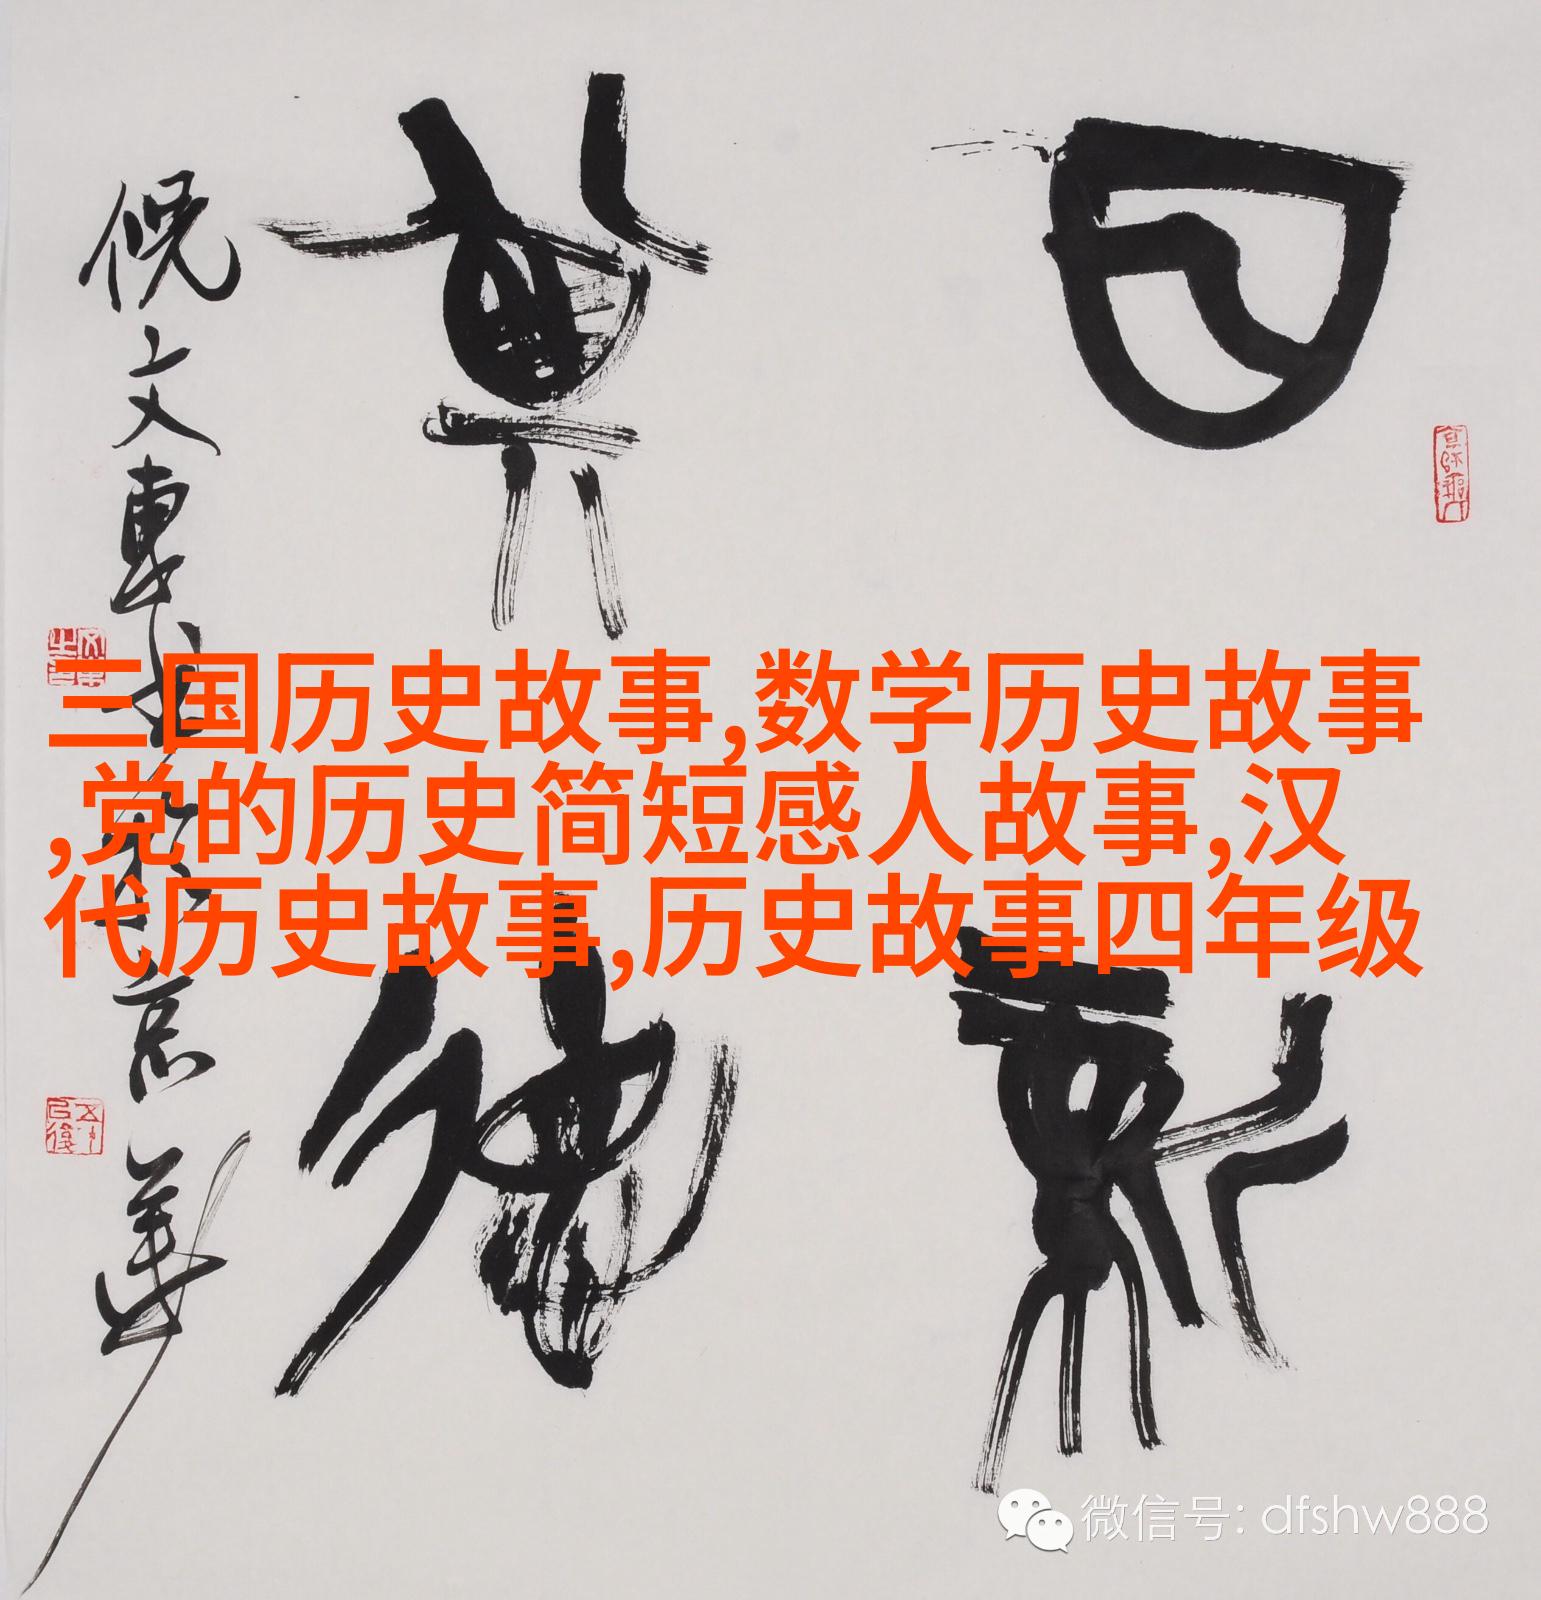 日新
其德
倪文東書於京華
三国历史故事,数学历史故事
,党的历史简短感人故事,汉
代历史故事,历史故事四年级
微信号: dfshw888